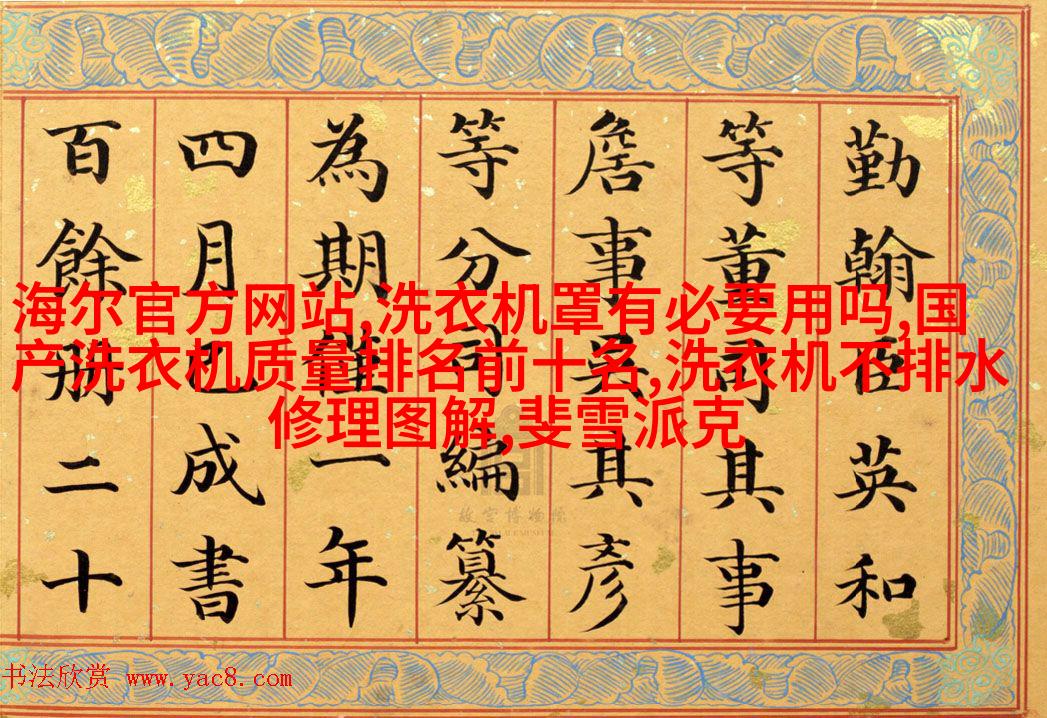 海尔官方网站,洗衣机罩有必要用吗,国
产洗衣机质量排名前十名,洗衣机不排水
修理图解,斐雪派克
勤翰臣英和
等董司其事
詹事吳其彥
等分司編纂
為期一年
四月已成書
百餘册二十
故宫博物院
书法欣赏 www.yac8.com